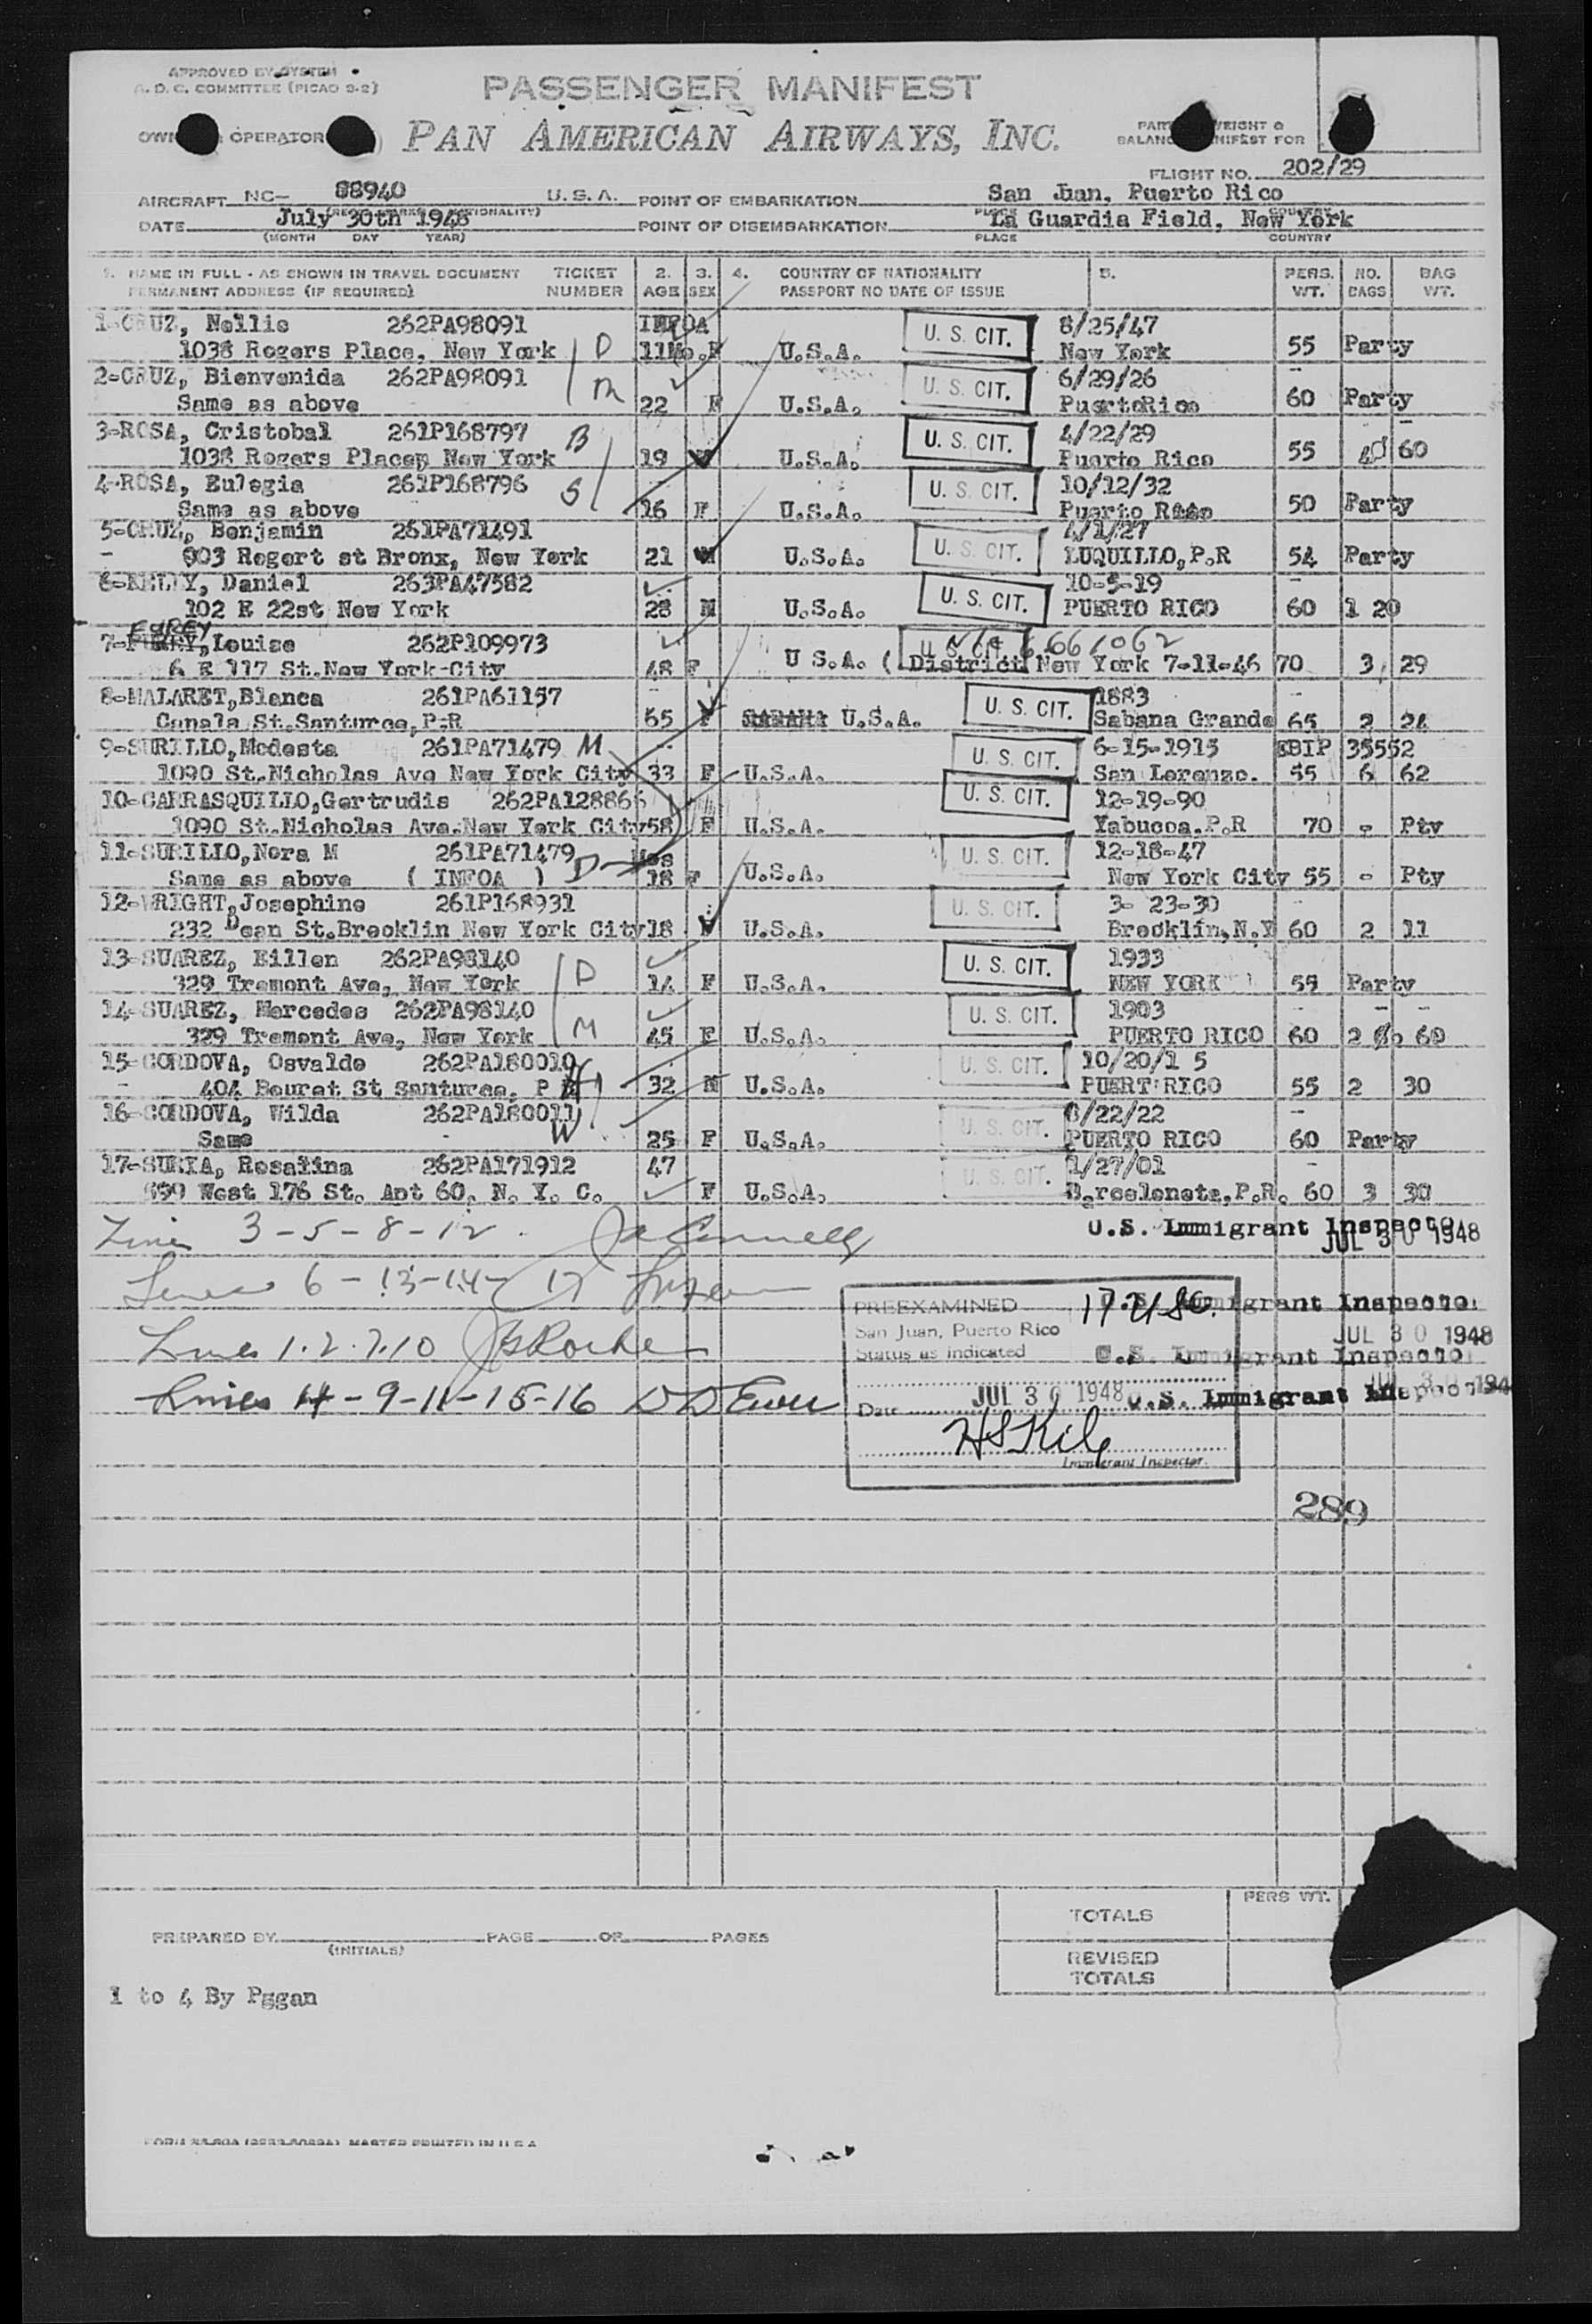 APPROVED BY SYSTEM
A. D. C. COMMITTEE (PICAO 2-2)
PASSENGER MANIFEST
OPERATOR
PAN AMERICAN AIRWAYS, INC.
FLIGHT NO. 202/29
AIRCRAFT NC- 88940 U. S. A. POINT OF EMBARKATION San Juan, Puerto Rico
DATE July 30th 1948 POINT OF DISEMBARKATION La Guardia Field, New York
(MONTH DAY YEAR) PLACE COUNTRY
1. NAME IN FULL - AS SHOWN IN TRAVEL DOCUMENT TICKET 2. 3. 4. COUNTRY OF NATIONALITY 5. PERS. NO. BAG
PERMANENT ADDRESS (IF REQUIRED) NUMBER AGE SEX PASSPORT NO DATE OF ISSUE WT. BAGS WT.
1-CRUZ, Nellie 262PA98091 INFOA U. S. CIT. 8/25/47
1038 Rogers Place, New York D 11Mo.F U.S.A. New York 55 Party
2-CRUZ, Bienvenida 262PA98091 U. S. CIT. 6/29/26
Same as above m 22 F U.S.A. PuertoRico 60 Party
3-ROSA, Cristobal 261P168797 B U. S. CIT. 4/22/29
1038 Rogers Placep New York 19 U.S.A. Puerto Rico 55 60
4-ROSA, Eulogia 261P168796 S U. S. CIT. 10/12/32
Same as above 16 F U.S.A. Puerto Rico 50 Party
5-CRUZ, Benjamin 261PA71491 U. S. CIT. 4/1/27
903 Rogert st Bronx, New York 21 M U.S.A. LUQUILLO,P.R 54 Party
Daniel 263PA47582 U. S. CIT. 10-5-19
102 E 22st New York 28 M U.S.A. PUERTO RICO 60 1 20
7- Louise 262P109973 6661062
6 E 117 St.New York-City 48 F U S.A. ( District New York 7-11-46 70 3 29
8-MALARET,Blanca 261PA61157 U. S. CIT. 1883
Canals St.Santurce,P.R 65 F U.S.A. Sabana Grande 65 2 24
9-SURILLO,Modesta 261PA71479 M U. S. CIT. 6-15-1915 EBIP 35552
1090 St.Nicholas Ave New York City 33 F U.S.A. San Lorenzo. 55 6 62
10-CARRASQUILLO,Gertrudis 262PA128866 U. S. CIT. 12-19-90
1090 St.Nicholas Ave.New York City58 F U.S.A. Yabucoa.P.R 70 - Pty
11-SURILLO,Nora M 261PA71479 Mos U. S. CIT. 12-18-47
Same as above ( INFOA ) D 18 F U.S.A. New York City 55 - Pty
12-WRIGHT,Josephine 261P168931 U. S. CIT. 3- 23-30
232 Dean St.Brooklin New York City18 F U.S.A. Brooklin,N.Y 60 2 11
13-SUAREZ, Eillen 262PA98140 U. S. CIT. 1933
329 Tremont Ave, New York D 14 F U.S.A. NEW YORK 55 Party
14-SUAREZ, Mercedes 262PA98140 U. S. CIT. 1903
329 Tremont Ave, New York M 45 F U.S.A. PUERTO RICO 60 2 60
15-CORDOVA, Osvaldo 262PA180010 U. S. CIT. 10/20/1 5
404 Bouret St Santurce, P R H 32 M U.S.A. PUERT RICO 55 2 30
16-CORDOVA, Wilda 262PA180011 U. S. CIT. 8/22/22
Same W 25 F U.S.A. PUERTO RICO 60 Party
17-SURIA, Rosalina 262PA171912 47 U. S. CIT. 1/27/01
599 West 176 St. Apt 60, N. Y. C. F U.S.A. Barceloneta,P.R. 60 3 30
Lines 3-5-8-12 U.S. Immigrant Inspector
JUL 30 1948
Lines 6-13-14-17 U.S. Immigrant Inspector
PREEXAMINED 17 USC.
San Juan, Puerto Rico JUL 30 1948
Lines 1.2.7.10 JBRoche Status as indicated U.S. Immigrant Inspector
Lines 4-9-11-15-16 JUL 30 1948 U.S. Immigrant Inspector
Date
Immigrant Inspector.
289
TOTALS PERS WT.
PREPARED BY PAGE OF PAGES
(INITIALS)
REVISED
TOTALS
1 to 4 By Pggan